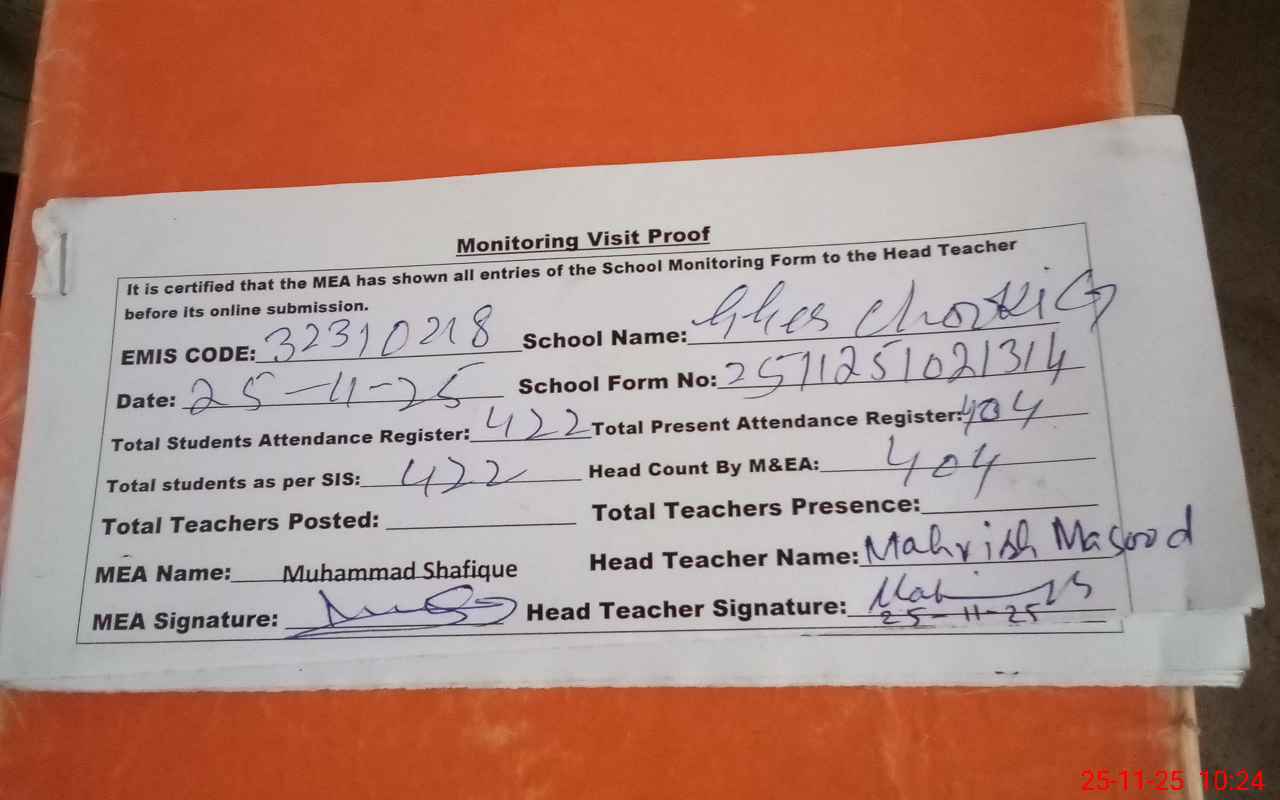 Monitoring Visit Proof
It is certified that the MEA has shown all entries of the School Monitoring Form to the Head Teacher
before its online submission.
EMIS CODE: 32310218 School Name:
Date: 25-11-25 School Form No: 2511251021314
Total Students Attendance Register: 422 Total Present Attendance Register: 404
Total students as per SIS: 422 Head Count By M&EA: 404
Total Teachers Posted: Total Teachers Presence:
MEA Name: Muhammad Shafique Head Teacher Name: Mahrish Masood
MEA Signature: Head Teacher Signature:
25-11-25
25-11-25 10:24